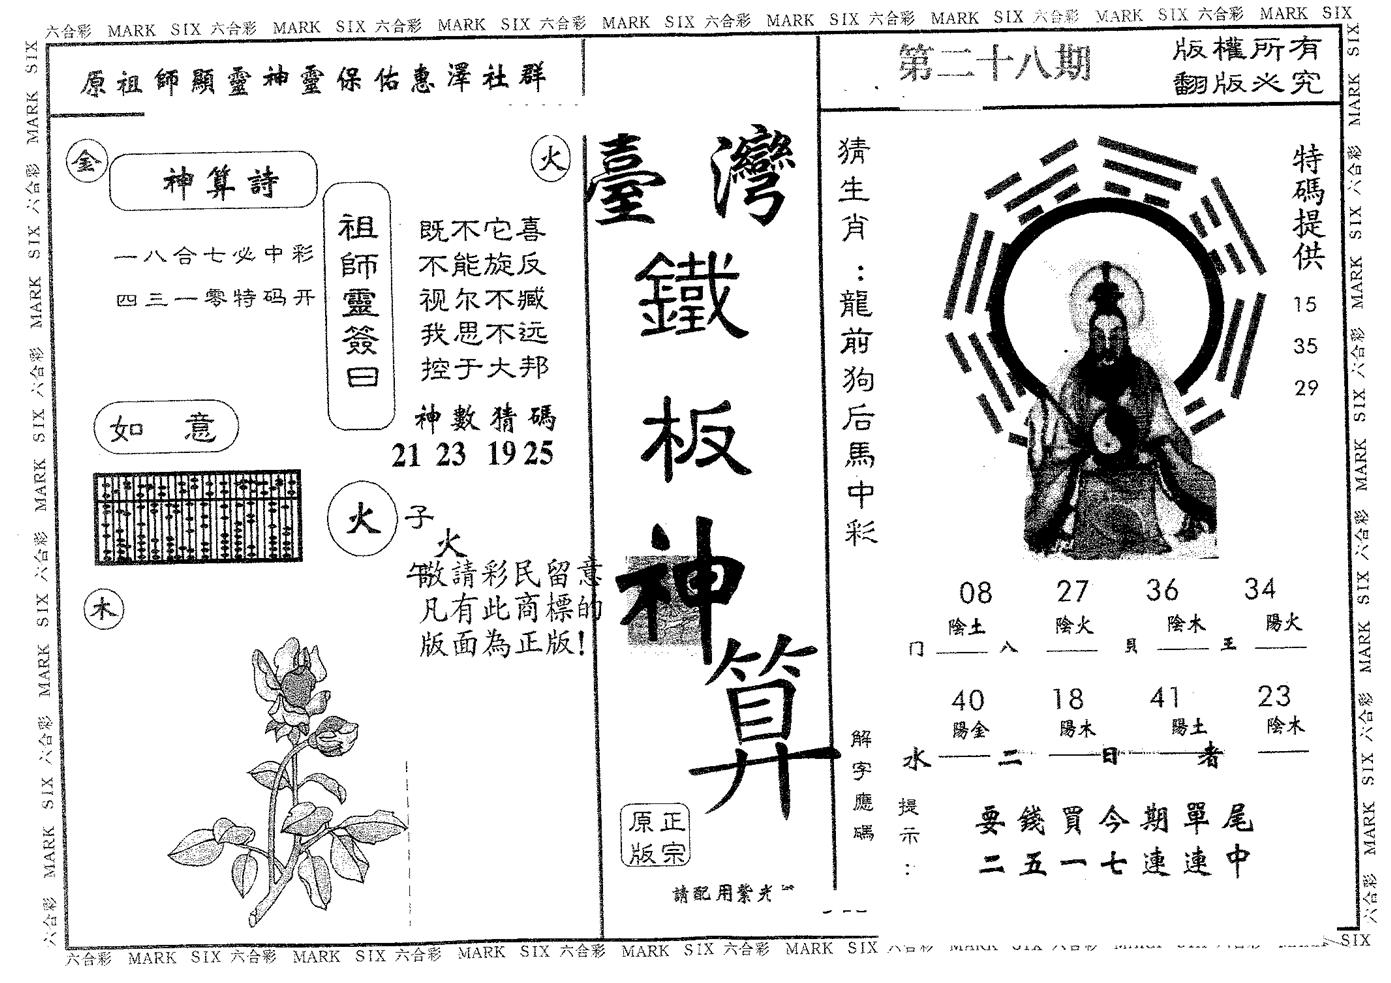 六合彩 MARK SIX 六合彩 MARK SIX 六合彩 MARK SIX 六合彩 MARK SIX 六合彩 MARK SIX 六合彩 MARK SIX 六合彩 MARK SIX 六合彩 MARK SIX
原祖師顯靈神靈保佑惠澤社群
金
神算詩
一八合七必中彩
四三一零特码开
火
祖師靈簽曰
既不它喜
不能旋反
视尔不臧
我思不远
控于大邦
神數猜碼
21 23 19 25
如意
火
子
火
午
敬請彩民留意
凡有此商標的
版面為正版!
木
臺灣
鐵
板
神
算
原正
版宗
請配用紫光
第二十八期
版權所有
翻版必究
猜生肖:龍前狗后馬中彩
特碼提供
15
35
29
08 27 36 34
陰土 陰火 陰木 陽火
门 八 貝 王
40 18 41 23
陽金 陽木 陽土 陰木
水 二 日 者
解字應碼
提示:
要錢買今期單尾
二五一七連連中
六合彩 MARK SIX 六合彩 MARK SIX 六合彩 MARK SIX 六合彩 MARK SIX 六合彩 MARK SIX